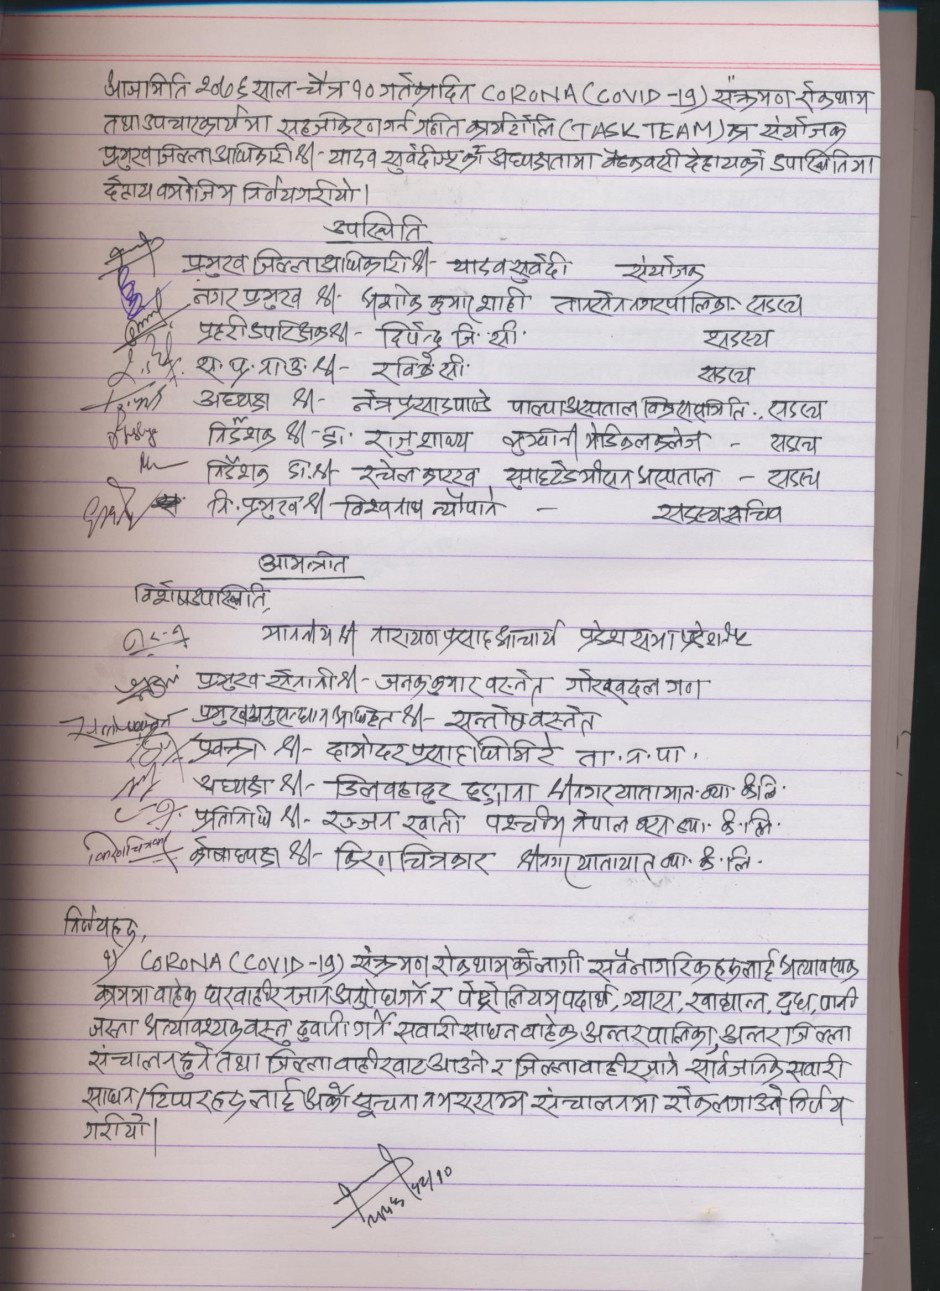 आजमिति २०७६ साल चैत्र १० गतेका दिन CORONA (COVID-19) संक्रमण रोकथाम
तथा उपचारकार्यमा सहजीकरण गर्न गठित कार्यटोलि (TASK TEAM) का संयोजक
प्रमुख जिल्ला अधिकारी श्री- यादव सुवेदीज्यूको अध्यक्षतामा बैठकवसी देहायको उपस्थितिमा
देहाय वमोजिम निर्णय गरीयो।
उपस्थिति
प्रमुख जिल्ला अधिकारी श्री- यादव सुवेदी संयोजक
नगर प्रमुख श्री- अशोक कुमार शाही तानसेन नगरपालिका- सदस्य
प्रहरी उपरिक्षक श्री- दिपेन्द्र जि. सी. सदस्य
स. प्र. ना. उ. श्री- रवि के सी. सदस्य
अध्यक्ष श्री- नेत्र प्रसाद पाण्डे पाल्पा अस्पताल विकास समिति - सदस्य
निर्देशक श्री- डा. राजु शाक्य लुम्वीनी मेडिकल कलेज - सदस्य
निर्देशक डा. श्री- रचेल कारख युनाइटेड मीसन अस्पताल - सदस्य
नि. प्रमुख श्री- विश्वनाथ न्यौपाने - सदस्य सचिव
आमन्त्रीत
विशेष उपस्थिति,
माननीय श्री नारायण प्रसाद आचार्य प्रदेश सभा प्रदेश नं ५
प्रमुख सेनानी श्री- जनक कुमार वस्नेत गोरखबदल गण
प्रमुख अनुसन्धान अधिकृत श्री- सन्तोष वस्नेत
प्रवक्ता श्री- दामोदर प्रसाद घिमिरे ता. न. पा.
अध्यक्ष श्री- डिलबहादुर श्रीनगर यातायात व्या. कं. लि.
प्रतिनिधि श्री- रञ्जन खाती पश्चीम नेपाल बस व्या. कं. लि.
कोषाध्यक्ष श्री- किरण चित्रकार श्रीनगर यातायात व्या. कं. लि.
निर्णयहरु,
१) CORONA (COVID-19) संक्रमण रोकथामको लागी सवै नागरिकहरुलाई अत्यावश्यक
काममा वाहेक घरवाहीर नजान अनुरोध गर्ने र पेट्रोलियम पदार्थ, ग्यास, खाद्यान्न, दुध, पानी
जस्ता अत्यावश्यक वस्तु ढुवानी गर्ने सवारी साधन वाहेक अन्तरपालिका, अन्तर जिल्ला
संचालन हुने तथा जिल्ला वाहीरवाट आउने र जिल्ला वाहीर जाने सार्वजनिक सवारी
साधन/टिप्परहरुलाई अर्को सूचना नभएसम्म संचालनमा रोक लगाउने निर्णय
गरीयो।